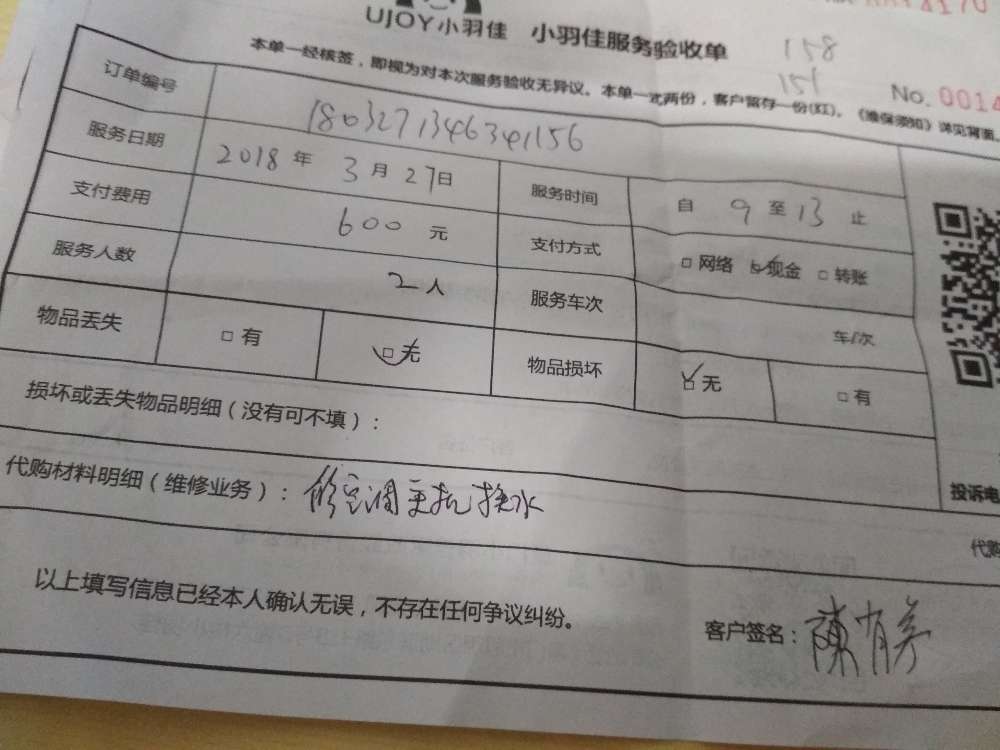 UJOY小羽佳 小羽佳服务验收单
158
151
本单一经核签，即视为对本次服务验收无异议。本单一式两份，客户留存一份(红)。《维保须知》详见背面。
No. 0014
订单编号 180327134634156
服务日期 2018 年 3 月 27 日 服务时间 自 9 至 13 止
支付费用 600 元 支付方式 □ 网络 ☑ 现金 □ 转账
服务人数 2 人 服务车次 车/次
物品丢失 □ 有 ☑ 无 物品损坏 ☑ 无 □ 有
损坏或丢失物品明细（没有可不填）：
代购材料明细（维修业务）： 修空调 主机 换水
投诉电
代购
以上填写信息已经本人确认无误，不存在任何争议纠纷。
客户签名：陳